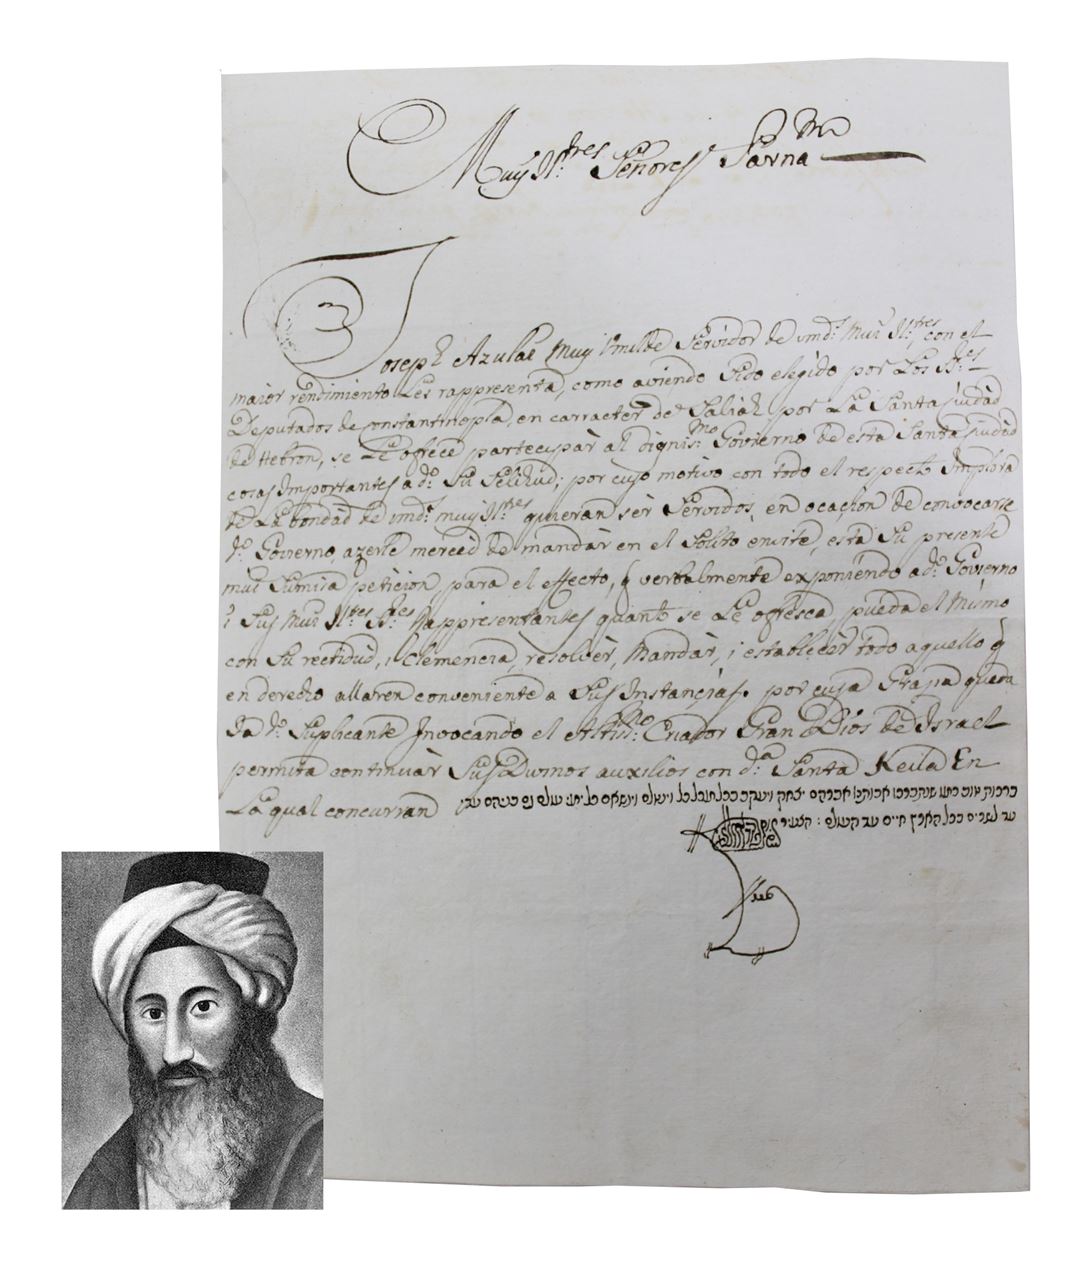 Muy Il.tres Señores Parna.im
Joseph Azulai Muy Umilde Servidor de vmd.s Mui Il.tres, con el
maior rendimiento Les rappresenta, como aviendo Sido elegido por Los SS.res
Deputados de Constantinopla, en carracter de Saliah por La Santa Ciudad
de Hebron, se Le ofrece partecipar al dignis.mo Govierno de esta Santa Ciudad
cosas Importantes a d.o Su Selihud; por cuyo motivo con todo el respecto Implora
de La bondad de vmd.s muy Il.tres quieran sèr Servidos, en ocacion de convocarse
d.o Govierno, azerle merced de mandàr en el Solito envite, esta Su presente
mui Sumisa peticion, para el effecto, q verbalmente exponiendo a d.o Govierno
i Sus Mui Il.tres SS.res Rappresentantes quanto se Le ofresca, pueda el Mismo
con Su rectidud, i Clemencia, resolvèr, Mandàr, i establecèr todo aquello q
en derecho allaren conveniente a Sus Instancias. por cuya Grazia queda
Ia d.o Suplicante Invocando el Altis.mo Criador Gran Dios de Israel
permita continuàr Sus Divinos auxilios con d.a Santa Keila En
La qual concurran ברכות אבותינו אברהם יצחק ויעקב
חיים